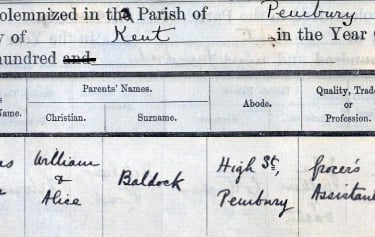 olemnized in the Parish of Pembury
y of Kent in the Year
hundred and
s Parents' Names. Quality, Trade
Name. Christian. Surname. Abode. or
Profession.
as William Baldock High St, Grocer's
& Pembury Assistant
Alice